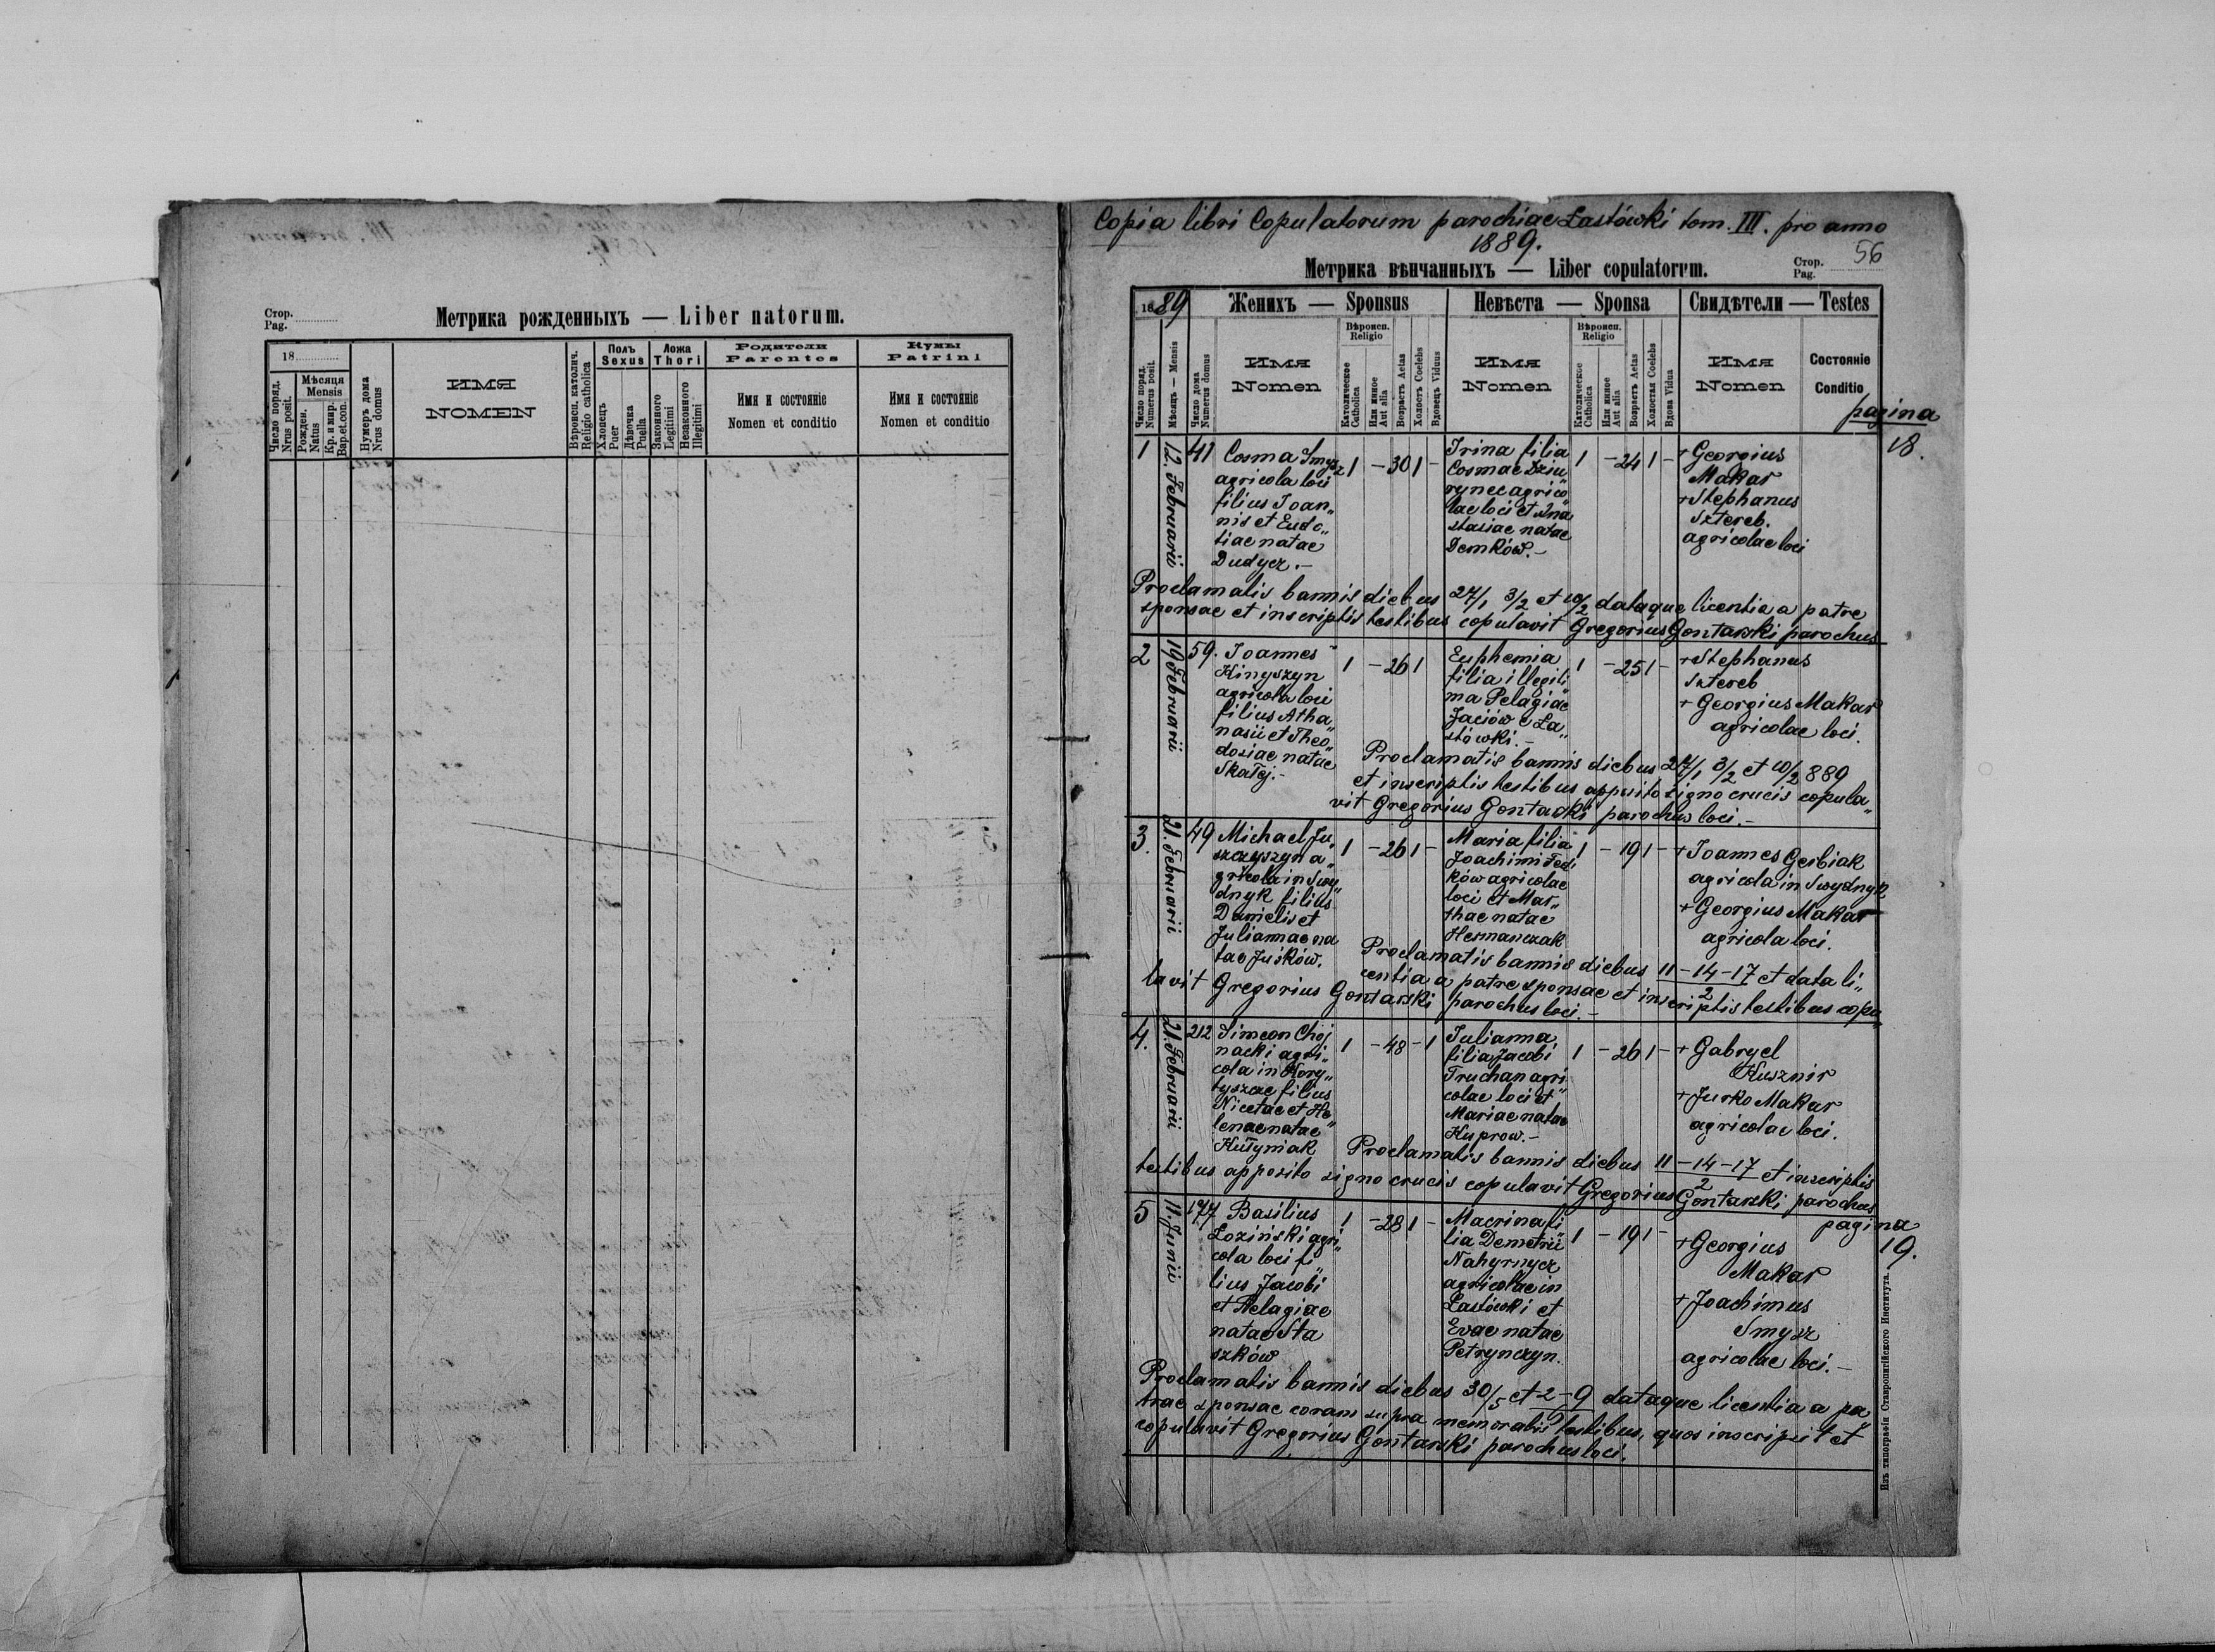 Стор.
Pag.
Метрика рожденныхъ — Liber natorum.
18
Число поряд.
Nrus posit.
Мѣсяця
Mensis
Рожден.
Natus
Кр. и мир.
Bap.et.con.
Нумеръ дома
Nrus domus
ИМЯ
NOMEN
Вѣроисп. католич.
Religio catholica
Полъ
Sexus
Хлопецъ
Puer
Дѣвочка
Puella
Ложа
Thori
Законного
Legitimi
Незаконного
Illegitimi
Родители
Parentes
Имя и состояніе
Nomen et conditio
Кумы
Patrini
Имя и состояніе
Nomen et conditio
Copia libri Copulatorum parochiae Łastówki tom. III. pro anno
1889.
56
Метрика вѣнчанныхъ — Liber copulatorum.
Стор.
Pag.
1889
Женихъ — Sponsus
Невѣста — Sponsa
Свидѣтели — Testes
Число поряд.
Numerus posit.
Мѣсяцъ — Mensis
Число дома
Numerus domus
Имя
Nomen
Вѣроисп.
Religio
Католическое
Catholica
Или инное
Aut alia
Возрастъ Aetas
Холостъ Coelebs
Вдовецъ Viduus
Имя
Nomen
Вѣроисп.
Religio
Католическое
Catholica
Или инное
Aut alia
Возрастъ Aetas
Холостая Coelebs
Вдова Vidua
Имя
Nomen
Состояніе
Conditio
pagina
18.
1
12. Februarii
41
Cosma Smysz
agricola loci
filius Joan„
nis et Eudo„
tiae natae
Dudycz.-
1 - 30 1 -
Irina filia
Cosmae Dziu„
rynec agrico„
lae loci et Ana
stasiae natae
Demków.-
1 - 24 1 -
+ Georgius
Makar
+ Stephanus
Sztereb.
agricolae loci
Proclamatis bannis diebus 27/1 3/2 et 10/2 dataque licentia a patre
sponsae et inscriptis testibus copulavit Gregorius Gontarski parochus
2
19 Februarii
59.
Joannes
Kinyszyn
agricola loci
filius Atha„
nasii et Theo„
dosiae natae
Skałej.-
1 - 26 1
Euphemia
filia illegiti„
ma Pelagiae
Jaciów e Ła„
stówki.-
1 - 25 1 -
+ Stephanus
Sztereb
+ Georgius Makar
agricolae loci.
Proclamatis bannis diebus 27/1 3/2 et 10/2 889
et inscriptis testibus apposito signo crucis copula„
vit Gregorius Gontarski parochus loci.-
3.
21. Februarii
49
Michael Ju„
szczyszyn a„
gricola in Swy„
dnyk filius
Danielis et
Juliannae na
tae Juśków.
1 - 26 1 -
Maria filia
Joachimi Fedi
ków agricolae
loci et Mar„
thae natae
Hermanczak
1 - 19 1 -
+ Joannes Gerbiak
agricola in Swydnyk
+ Georgius Makar
agricola loci.
Proclamatis bannis diebus 11-14-17/2 et data li„
centia a patre sponsae et inscriptis testibus copu„
lavit Gregorius Gontarski parochus loci.-
4.
21. Februarii
212
Simeon Choj
nacki agri„
cola in Kory„
tyszcze filius
Nicetae et He„
lenae natae
Hułyniak
1 - 48 - 1
Julianna
filia Jacobi
Truchan agri„
colae loci et
Mariae natae
Kuprow.-
1 - 26 1 -
+ Gabryel
Kusznir
+ Jurko Makar
agricolae loci.
Proclamatis bannis diebus 11-14-17/2 et inscriptis
testibus apposito signo crucis copulavit Gregorius Gontarski parochus
pagina
19.
5
11. Junii
177
Basilius
Łoziński agri„
cola loci fi„
lius Jacobi
et Pelagiae
natae Sta
szków
1 - 28 1 -
Macrina fi
lia Demetrii
Nahyrnycz
agricolae in
Łastówki et
Evae natae
Petrynczyn.
1 - 19 1 -
+ Georgius
Makar
+ Joachimus
Smysz
agricolae loci.-
Proclamatis bannis diebus 30/5 et 2-9 dataque licentia a pa
trae sponsae coram supra memoratis testibus, quos inscripsit et
copulavit Gregorius Gontarski parochus loci.
Изъ типографіи Ставропигійского Института.